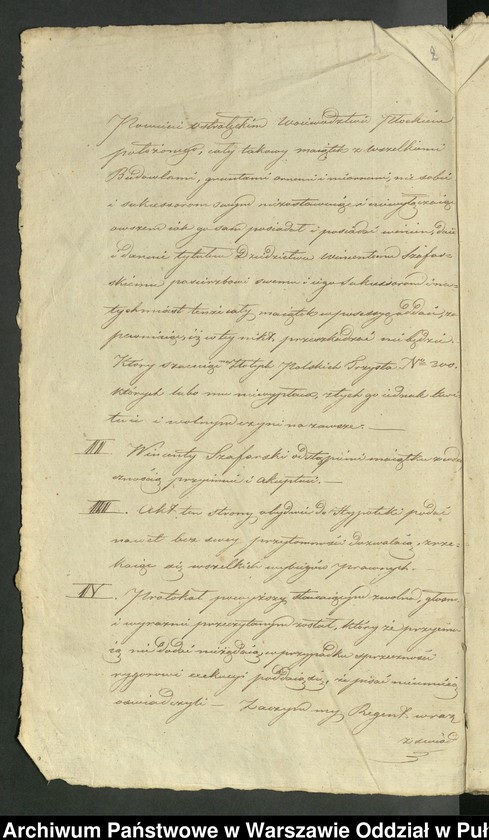 2
Powiecie Ostrołęckim Województwie Płockim
położonego, cały takowy maiątek z wszelkiemi
Budowlami, gruntami ornemi i nieornemi, nic sobie
i sukcessorom swym niezostawuiąc i niewyłączaiąc
owszem iak go sam posiadał i posiadać winien, daie
i daruie tytułem Dziedzictwa Wincentemu Szafar-
skiemu pasierzbowi swemu i iego Sukcessorom i na-
tychmiast tenże cały maiątek w possessyą oddaie, za-
pewniaiąc iż w tey nikt przeszkadzać nie będzie.
Który szacuie na złotych Polskich Trzysta Nro 300.
których lubo mu niewypłaca, z tych go iednak kwi-
tuie i wolnym czyni na zawsze. —
III Wincenty Szafarski odstąpienie maiątku z wdzię-
cznością przyimuie i akceptuie. —
IIII. Akt ten strony obydwie do Hypoteki podać
nawet bez swey przytomności dozwalaią, zrze-
kaiąc się wszelkich wybiegów prawnych. —
IV. Protokół powyższy stawaiącym zwolna, głośno
i wyraźnie przeczytanym został, który że przyimu-
ią nie dodać nieżądaią, w przypadku sprzeczności
rygorowi exekucyi poddaią się, że pisać nieumieią
oświadczyli — Zaczym my Regent wraz
z świad
Archiwum Państwowe w Warszawie Oddział w Puł